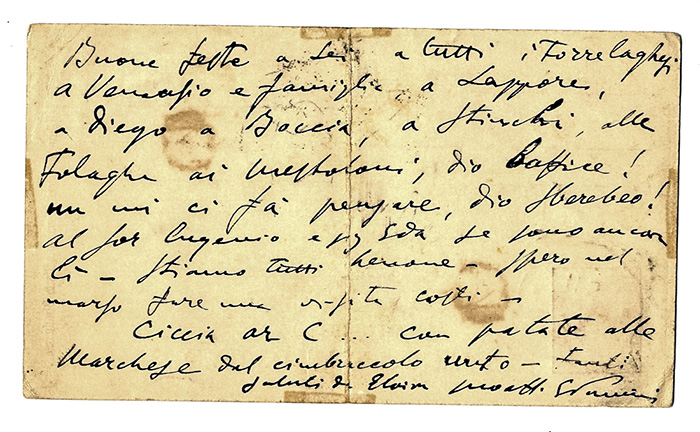 Buone feste a Lei a tutti i Torrelaghesi
a Venanzio e famiglia a Lappore,
a Diego a Boccia, a Stinchi, alle
Folaghe ai Mestoloni, dio
mi ci fà pensare, dio
al sor Eugenio e sono ancora
lì – Stiamo tutti benone – Spero nel
marzo fare una visita costì –
Ciccia ar C... con patate alle
Marchese dal unto – Tanti
saluti da Elvira